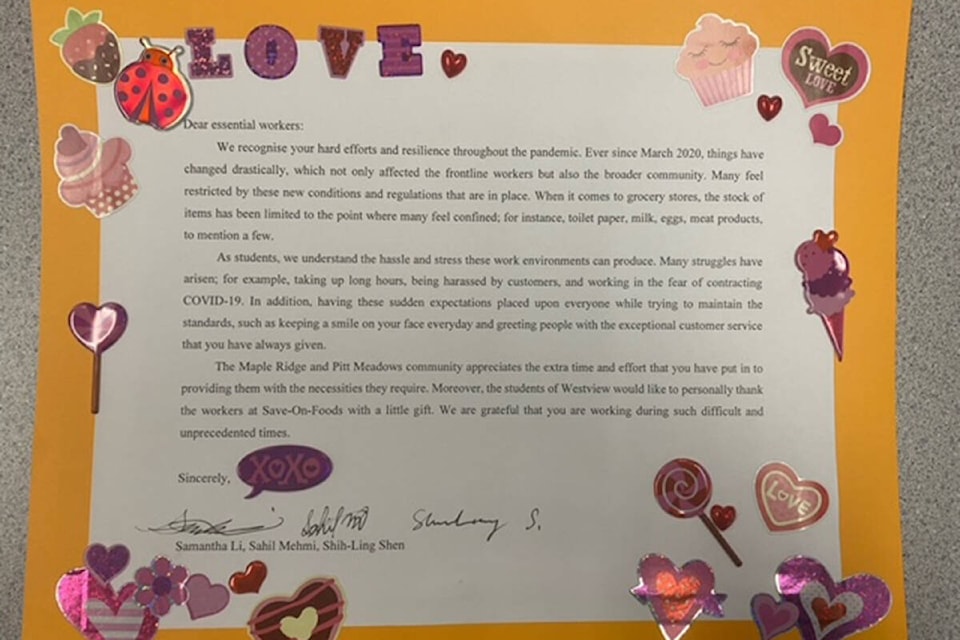 LOVE
Sweet
LOVE
Dear essential workers:
We recognise your hard efforts and resilience throughout the pandemic. Ever since March 2020, things have
changed drastically, which not only affected the frontline workers but also the broader community. Many feel
restricted by these new conditions and regulations that are in place. When it comes to grocery stores, the stock of
items has been limited to the point where many feel confined; for instance, toilet paper, milk, eggs, meat products,
to mention a few.
As students, we understand the hassle and stress these work environments can produce. Many struggles have
arisen; for example, taking up long hours, being harassed by customers, and working in the fear of contracting
COVID-19. In addition, having these sudden expectations placed upon everyone while trying to maintain the
standards, such as keeping a smile on your face everyday and greeting people with the exceptional customer service
that you have always given.
The Maple Ridge and Pitt Meadows community appreciates the extra time and effort that you have put in to
providing them with the necessities they require. Moreover, the students of Westview would like to personally thank
the workers at Save-On-Foods with a little gift. We are grateful that you are working during such difficult and
unprecedented times.
Sincerely,
XOXO
LOVE
Samantha Li, Sahil Mehmi, Shih-Ling Shen